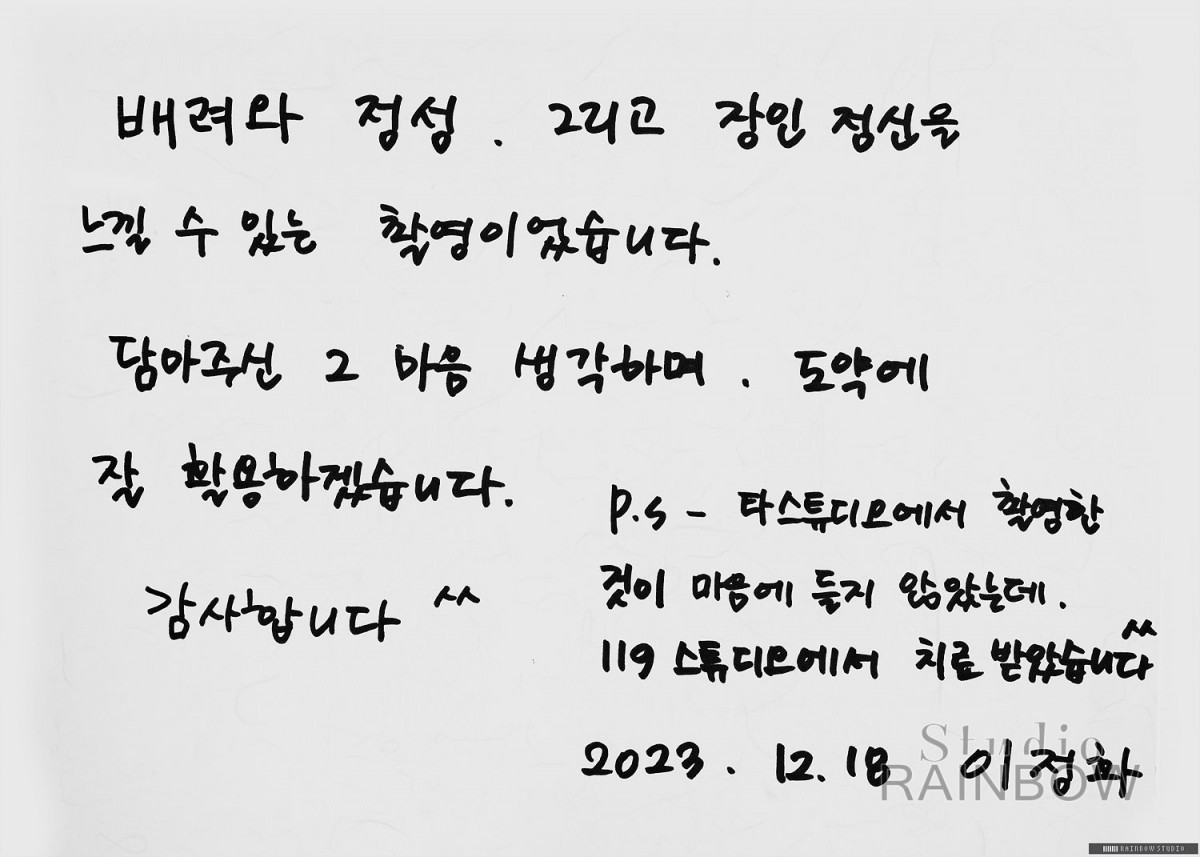 배려와 정성. 그리고 장인 정신을
느낄 수 있는 촬영이었습니다.
담아주신 그 마음 생각하며. 도약에
잘 활용하겠습니다.
감사합니다 ^^
P.S - 타스튜디오에서 촬영한
것이 마음에 들지 않았는데.
119 스튜디오에서 치료 받았습니다 ^^
2023. 12. 18 이정화
Studio
RAINBOW
RAINBOW STUDIO